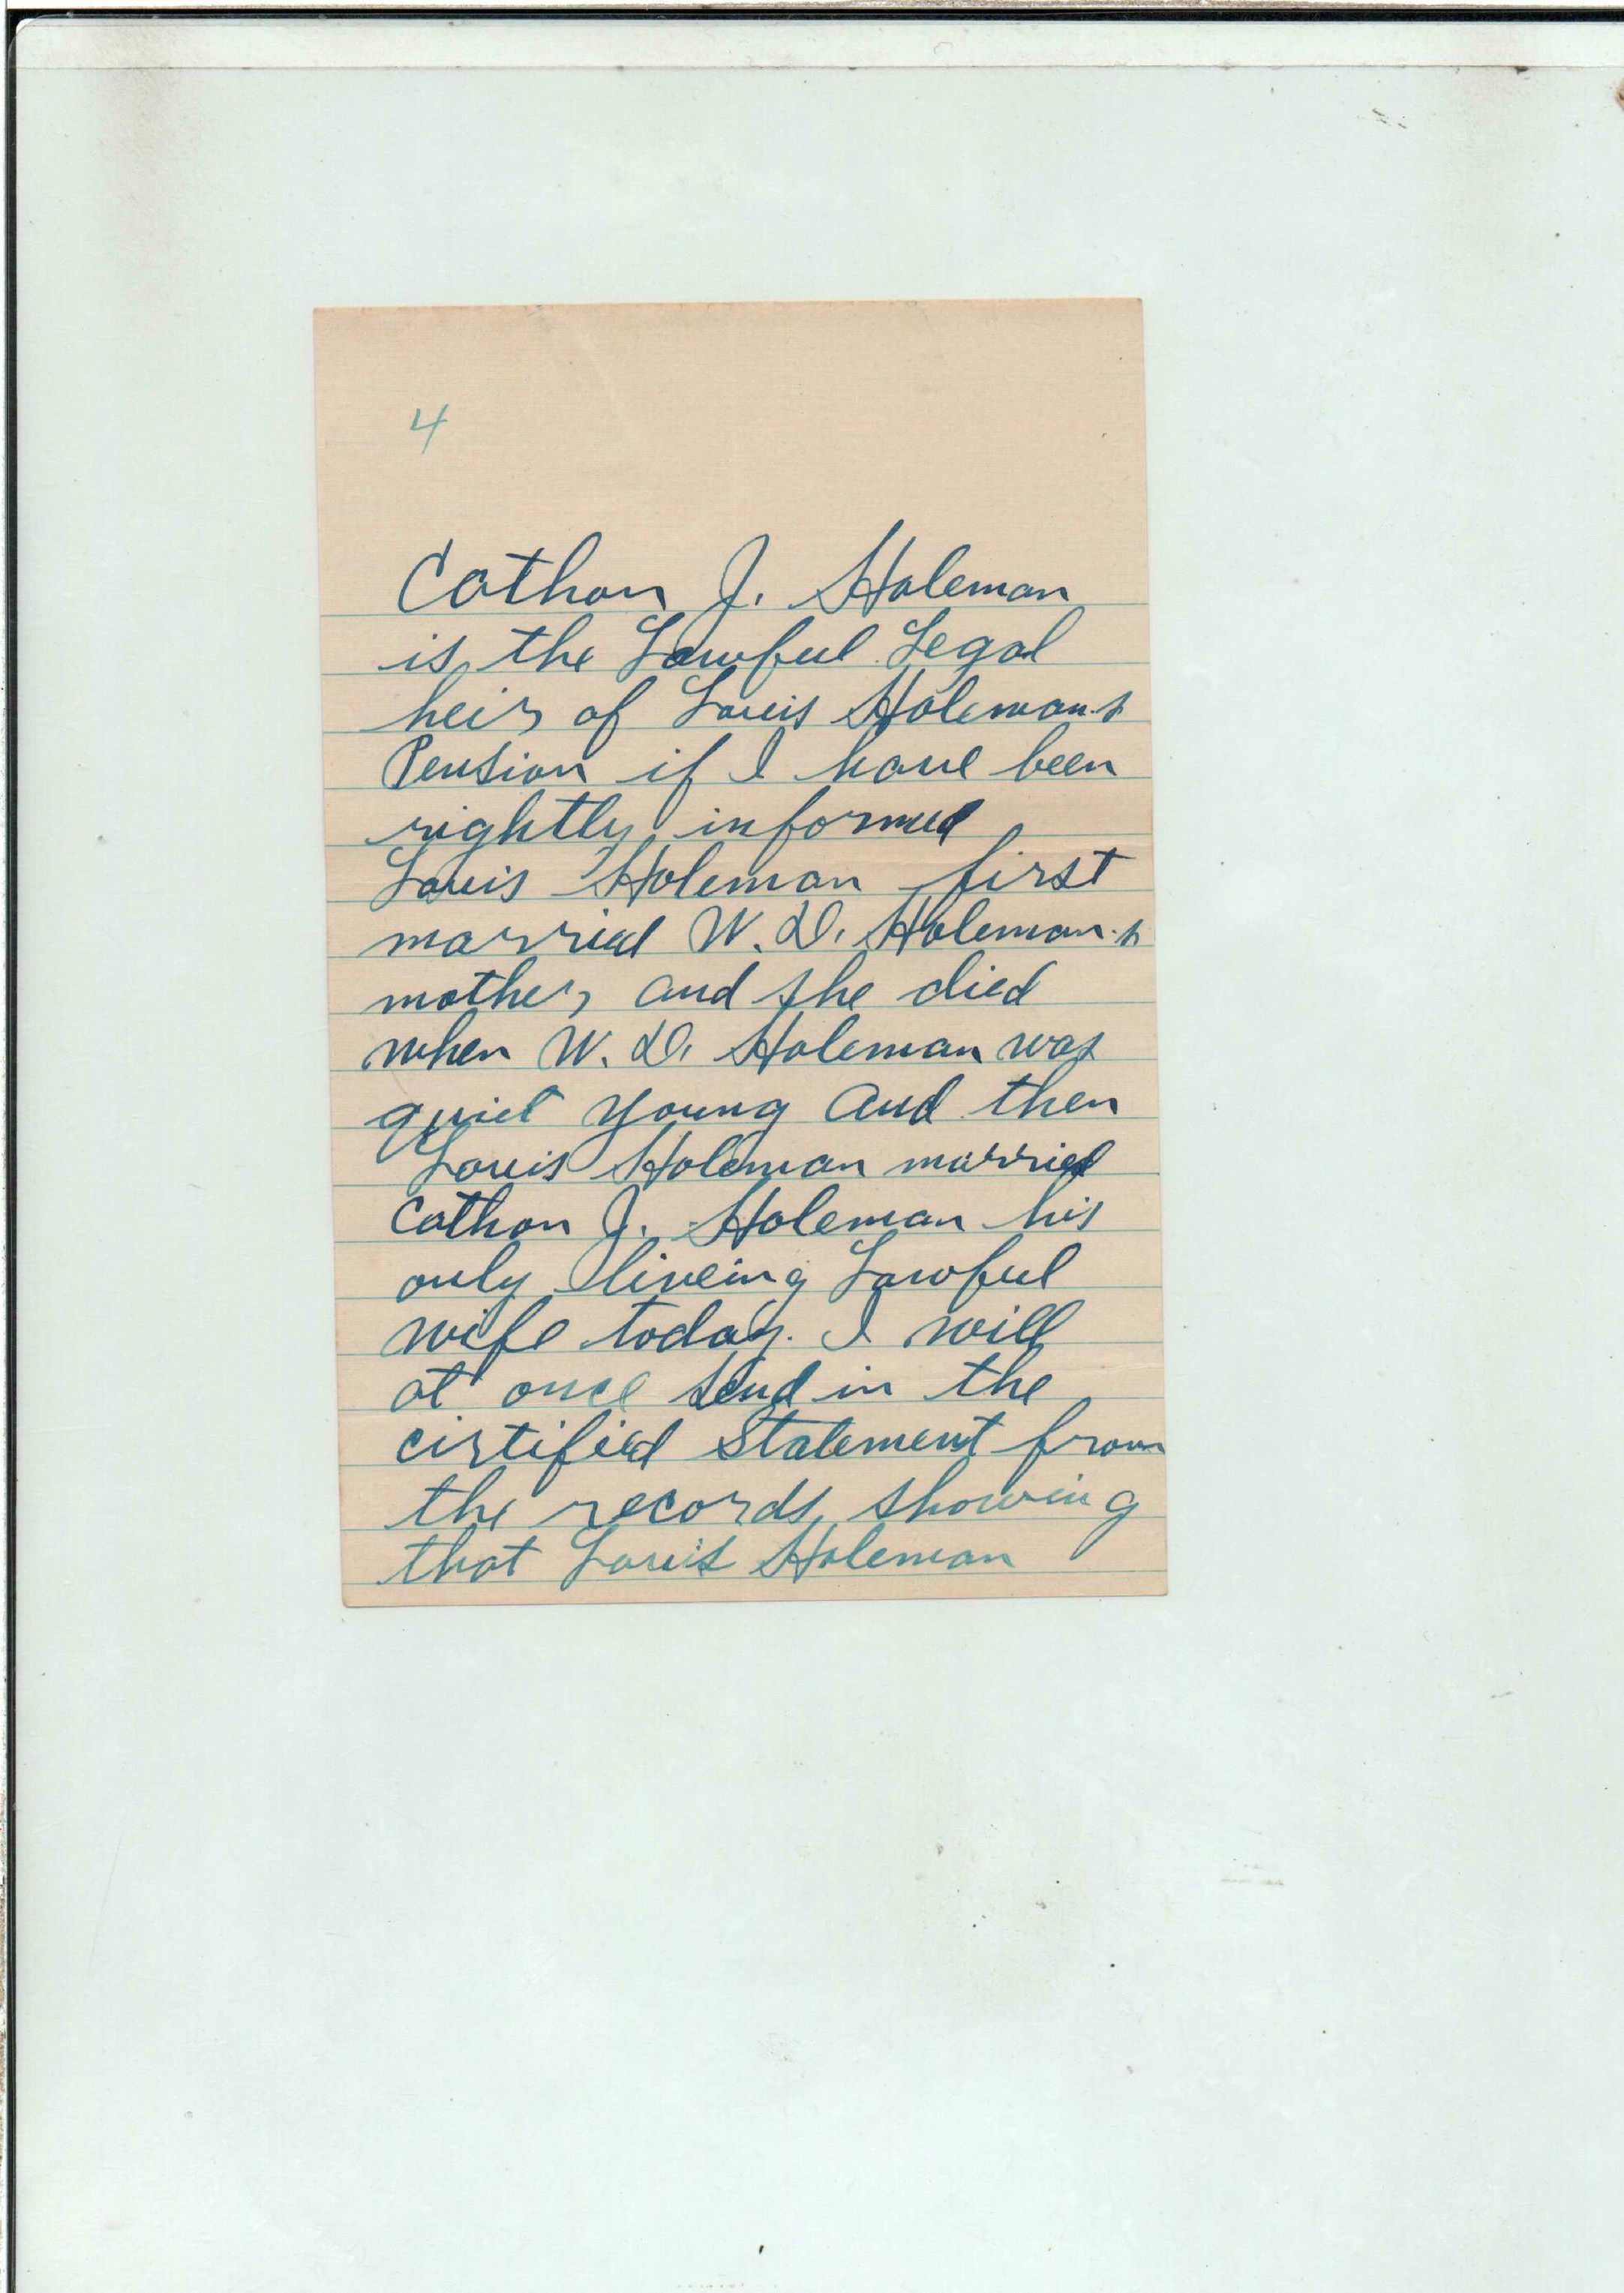 4
Cathan J. Holeman
is the Lawful Legal
heir of Louis Holeman.s
Pension if I have been
rightly informed
Louis Holeman first
married W. D. Holeman.s
mother, and she died
when W. D. Holeman was
quiet young and then
Louis Holeman married
Cathan J. Holeman his
only liveing Lawful
wife today. I will
at once send in the
cirtified Statement from
the records, showing
that Louis Holeman